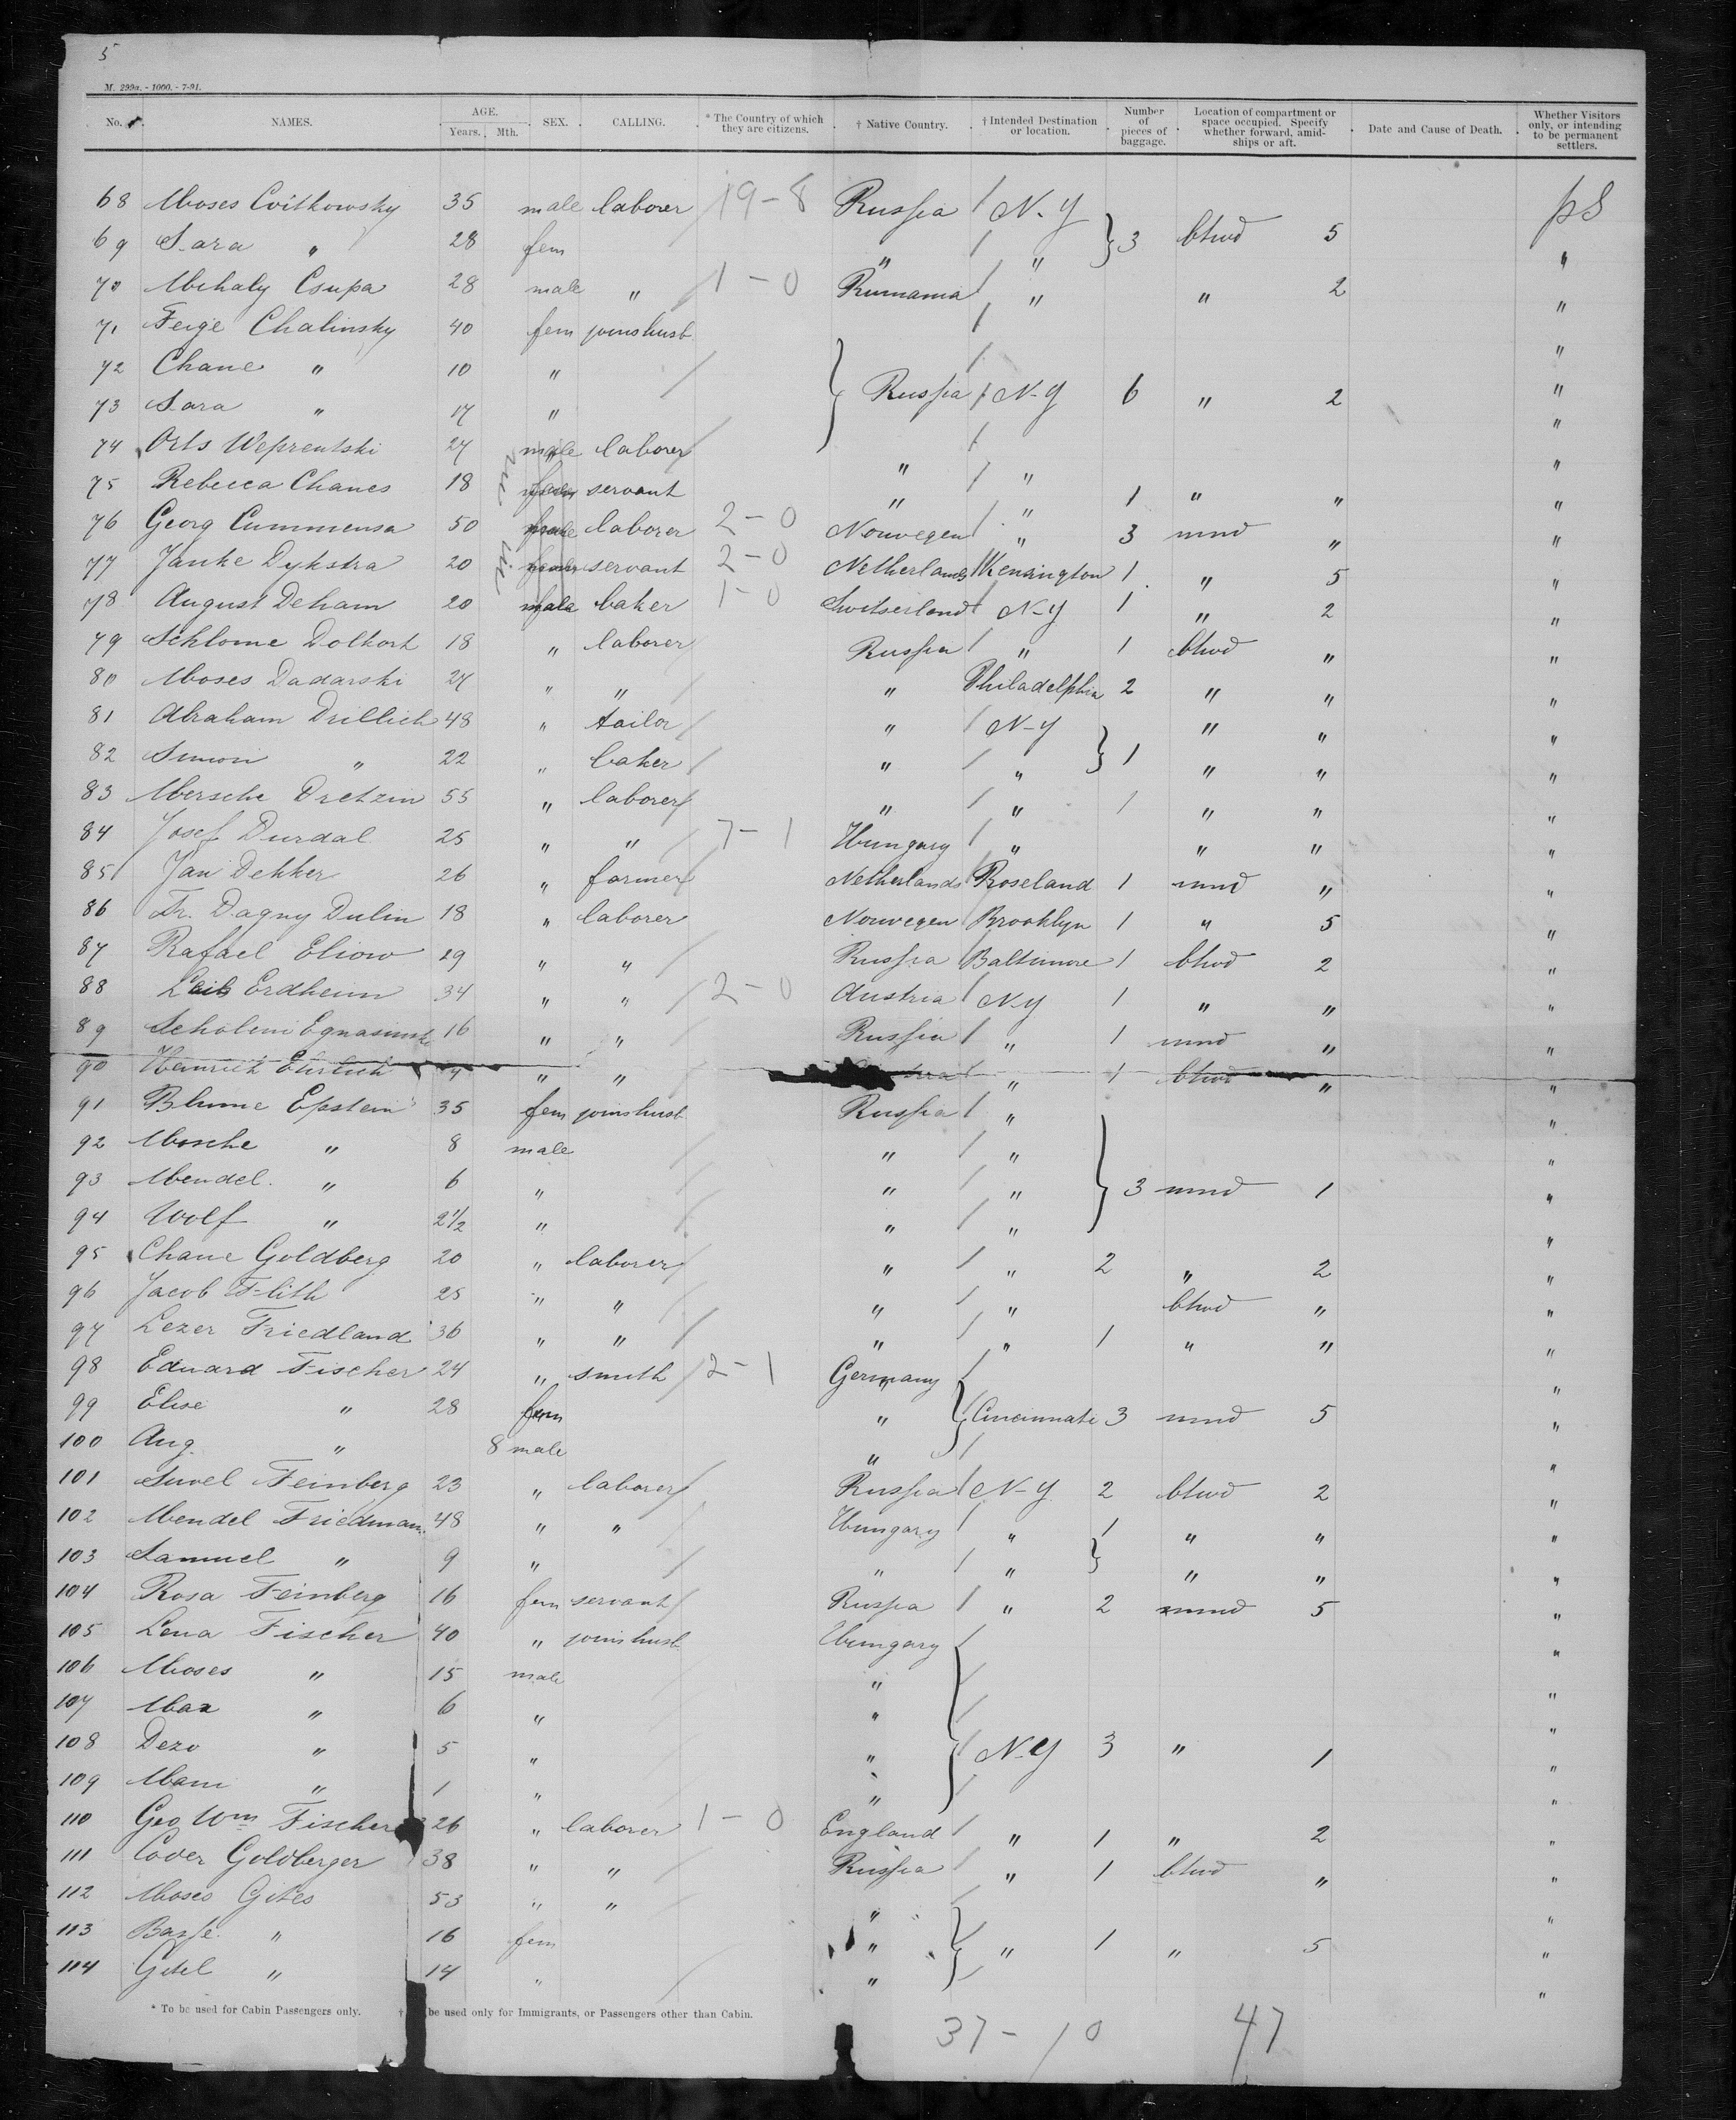 5
M. 299a. - 1000. - 7-91.
No. NAMES. AGE. Years. Mth. SEX. CALLING. * The Country of which they are citizens. † Native Country. † Intended Destination or location. Number of pieces of baggage. Location of compartment or space occupied. Specify whether forward, amidships or aft. Date and Cause of Death. Whether Visitors only, or intending to be permanent settlers.
68 Moses Cvitkowsky 35 male laborer / 19-8 Russia / N-Y pS
69 Sara " 28 fem " / " } 3 btwd 5 "
70 Mihaly Csupa 28 male " / 1-0 Rumania / " " 2 "
71 Feige Chalinsky 40 fem joins husb / "
72 Chane " 10 " / / "
73 Sara " 17 " } Russia / N-Y 6 " 2 "
74 Orts Weprentski 27 male laborer / / "
75 Rebecca Chanes 18 servant " / " "
76 Georg Cummensa 50 laborer 2-0 " / " 1 " " "
77 Janke Dykstra 20 servant 2-0 Norwegen / " 3 mmd " "
78 August Deham 20 male baker 1-0 Netherlands / Kensington 1 " 5 "
79 Schlome Dolkort 18 " laborer / Switserland / N-Y 1 " 2 "
80 Moses Dadarski 27 " " / Russia / " 1 btwd " "
81 Abraham Drillich 48 " tailor / " Philadelphia 2 " " "
82 Simon " 22 " baker / " / N-Y } 1 " " "
83 Mersche Dretzin 55 " laborer / " / " 1 " " "
84 Josef Durdal 25 " " / 7-1 Hungary / " " " "
85 Jan Dekker 26 " farmer / Netherlands / Roseland 1 mmd " "
86 Fr. Dagny Dulin 18 " laborer Norwegen Brooklyn 1 " 5 "
87 Rafael Eliow 29 " " Russia / Baltimore 1 btwd 2 "
88 Leib Erdheim 34 " " / 2-0 Austria / NY 1 " " "
89 Scholem 16 " " Russia / " 1 mmd " "
90 Heinrich Ehrlich " " " 1 btwd " "
91 Blume Epstein 35 fem joins husb Russia / " "
92 Mosche " 8 male / " / " "
93 Mendel " 6 " / " / " } 3 mmd 1 "
94 Wolf " 2 1/2 " / " / " "
95 Chane Goldberg 20 " laborer / " / " 2 " 2 "
96 Jacob Flith 25 " " / " / " btwd " "
97 Lezer Friedland 36 " " / " / " 1 " " "
98 Eduard Fischer 24 " smith / 2-1 Germany / "
99 Elise " 28 fem " } Cincinnati 3 mmd 5 "
100 Aug. " 8 male " / "
101 Suvel Feinberg 23 " laborer / Russia / N-Y 2 btwd 2 "
102 Mendel Friedmann 48 " " / Hungary / " 1 " " "
103 Samuel " 9 " / " / " } " " "
104 Rosa Feinberg 16 fem servant / Russia / " 2 mmd 5 "
105 Lena Fischer 40 " joins husb Hungary / "
106 Moses " 15 male " / "
107 Max " 6 " " / "
108 Dezo " 5 " " } / N-Y 3 " 1 "
109 Mani " 1 " " / "
110 Geo Wm Fischer 26 " laborer 1-0 England / " 1 " 2 "
111 Cover Goldberger 38 " " / Russia / " 1 btwd " "
112 Moses Gites 53 " " / " / "
113 Basse " 16 fem " } / " 1 " 5 "
114 Gitel " 14 " / " / "
* To be used for Cabin Passengers only. † be used only for Immigrants, or Passengers other than Cabin.
37-10 47